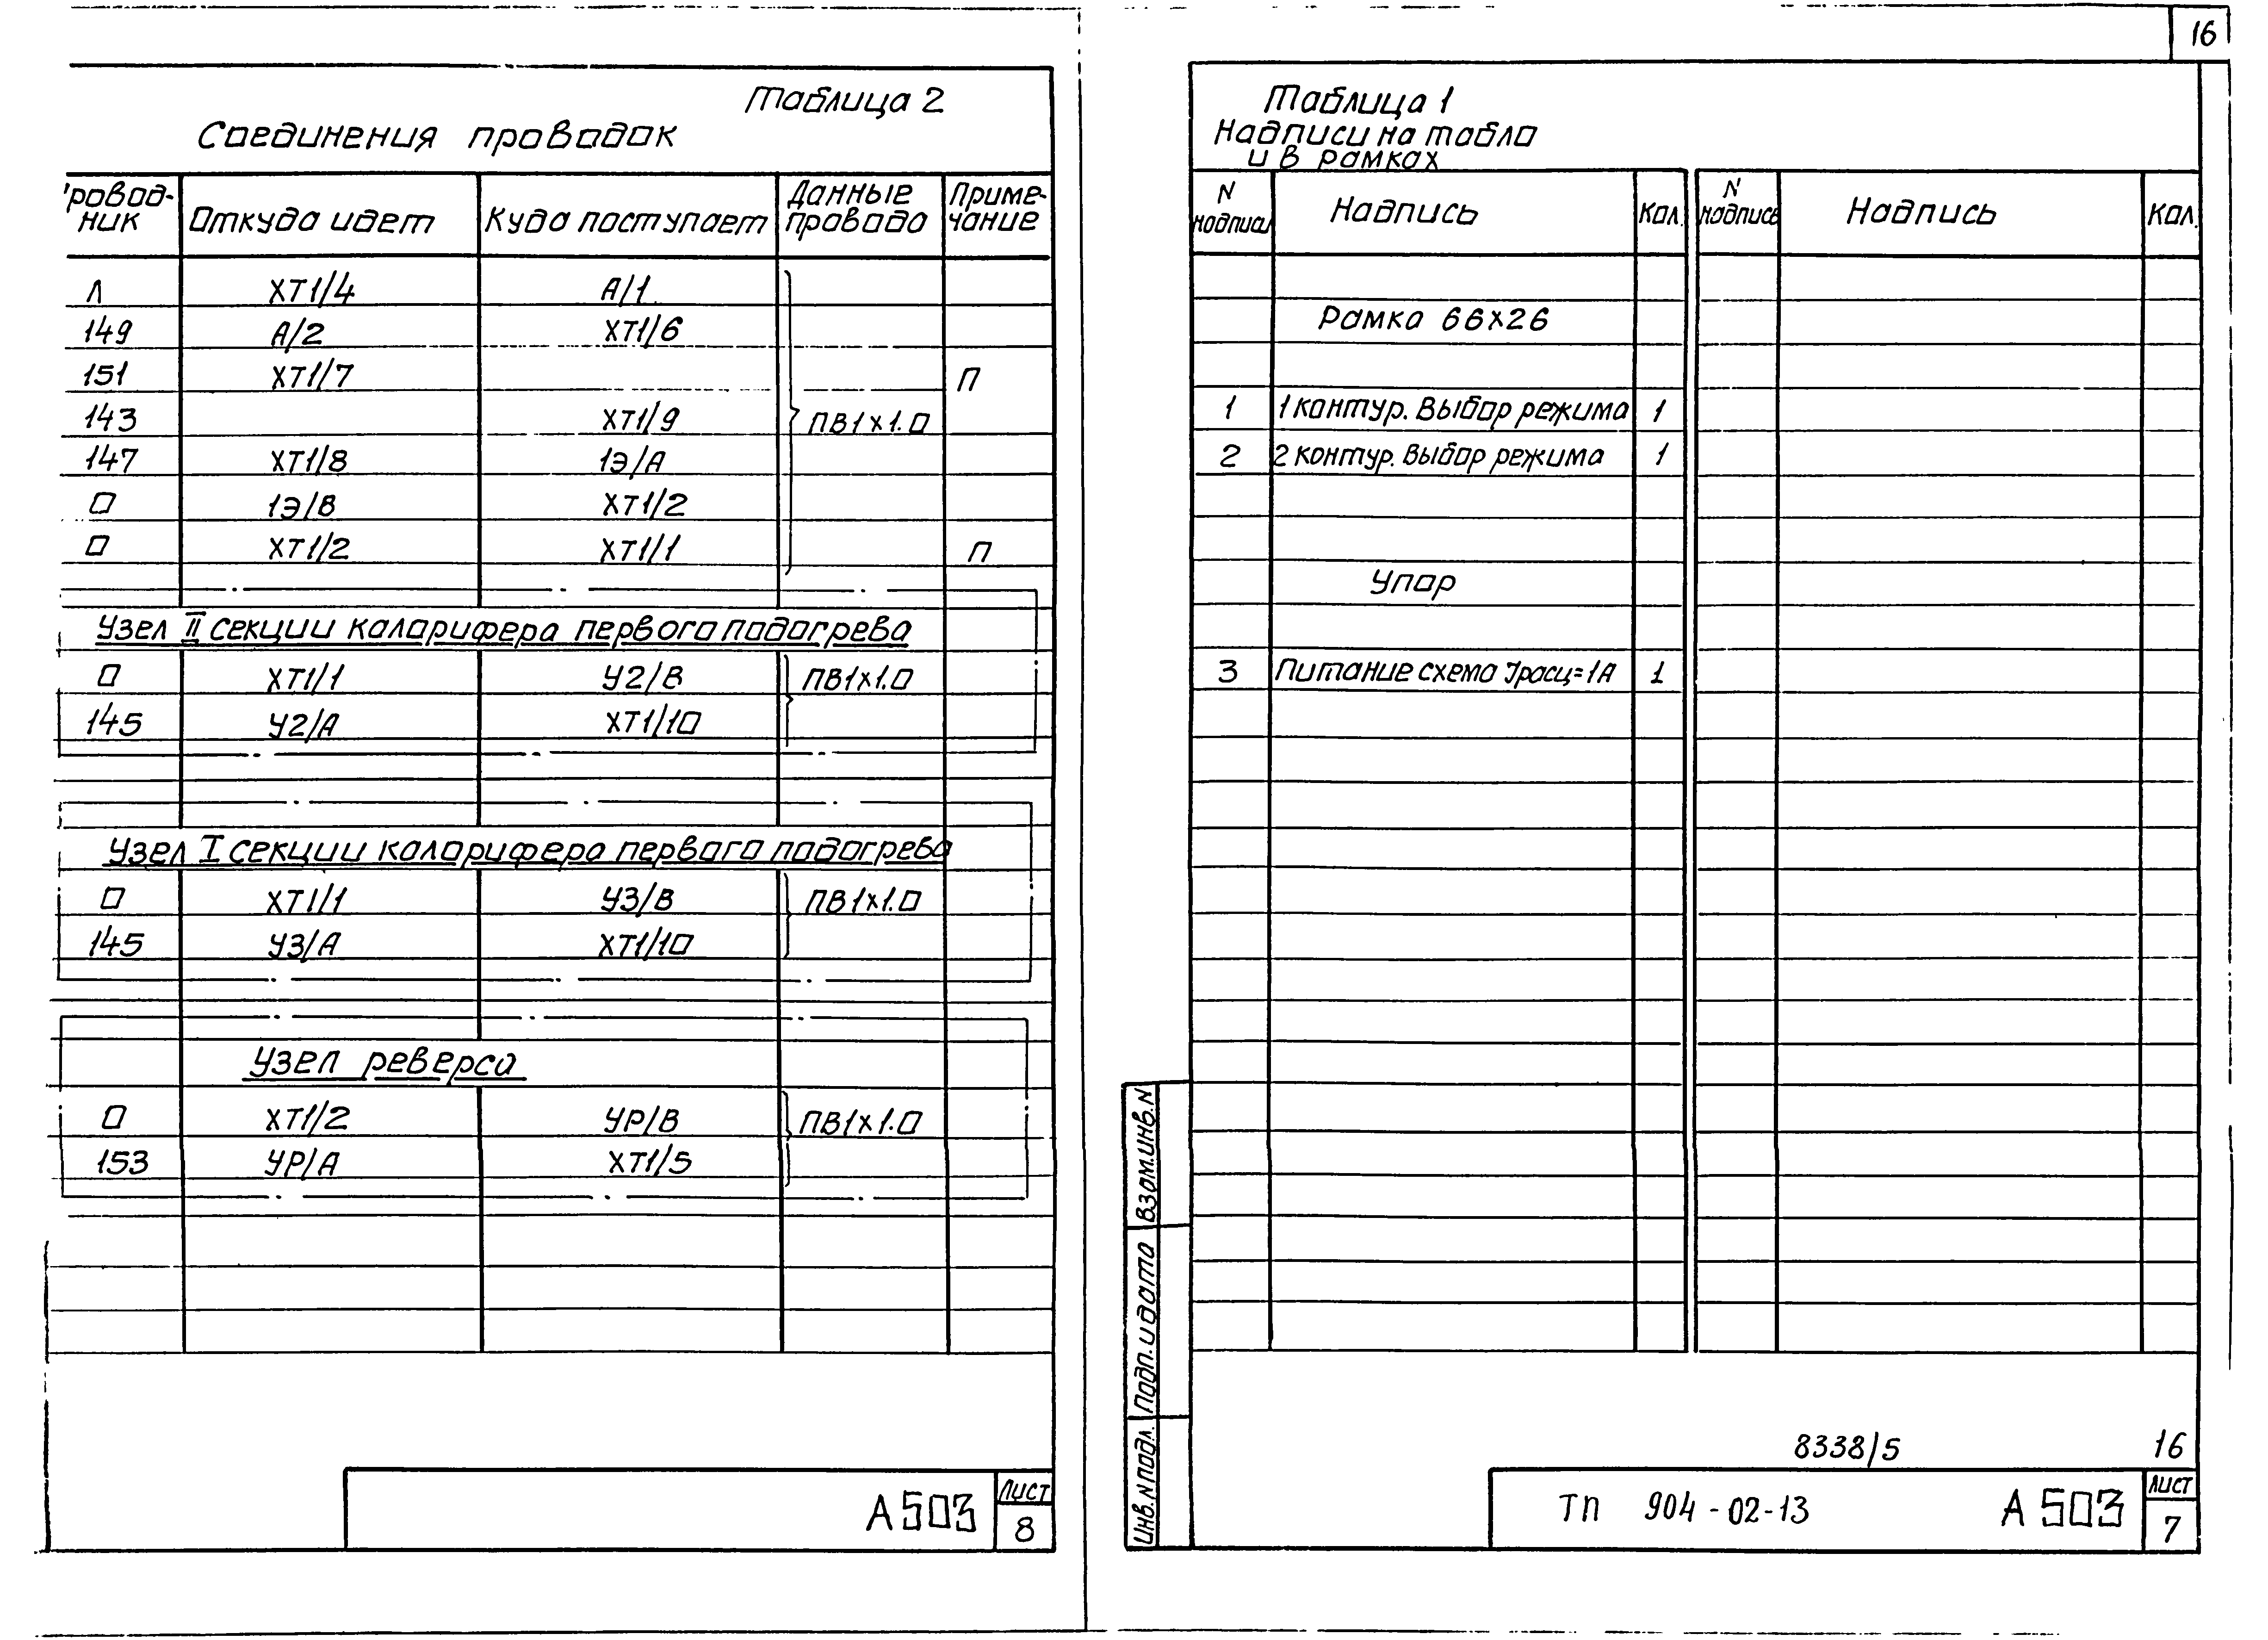 16
Таблица 2
Соединения проводок
Провод-
ник
Откуда идет
Куда поступает
Данные
провода
Приме-
чание
Л ХТ1/4 А/1
149 А/2 ХТ1/6
151 ХТ1/7 П
143 ХТ1/9 ПВ1х1.0
147 ХТ1/8 1Э/А
0 1Э/В ХТ1/2
0 ХТ1/2 ХТ1/1 П
Узел II секции калорифера первого подогрева
0 ХТ1/1 У2/В ПВ1х1.0
145 У2/А ХТ1/10
Узел I секции калорифера первого подогрева
0 ХТ1/1 У3/В ПВ1х1.0
145 У3/А ХТ1/10
Узел реверса
0 ХТ1/2 УР/В ПВ1х1.0
153 УР/А ХТ1/5
А503
Лист
8
Таблица 1
Надписи на табло
и в рамках
N
надписи
Надпись
Кол.
N
надписи
Надпись
Кол.
Рамка 66х26
1 1 контур. Выбор режима 1
2 2 контур. Выбор режима 1
Упор
3 Питание схема Jрасц=1А 1
Взам.инв.N
Подп. и дата
Инв.N подл.
8338/5 16
ТП 904-02-13 А503
Лист
7